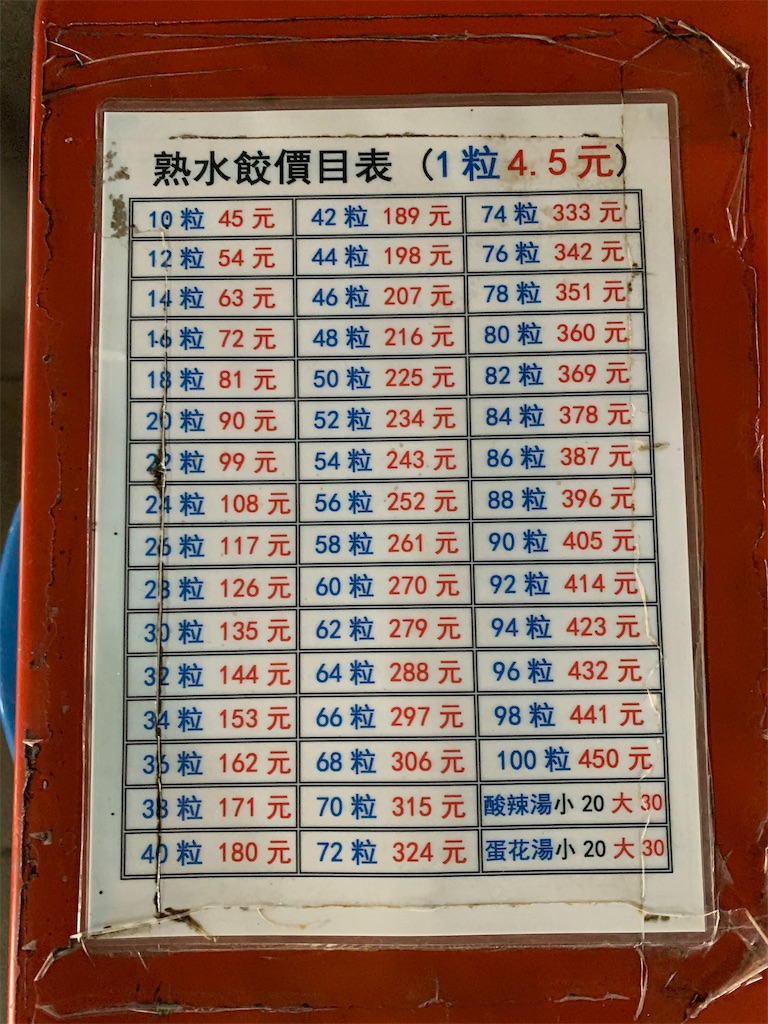 熟水餃價目表（1粒4.5元）
10粒 45元 42粒 189元 74粒 333元
12粒 54元 44粒 198元 76粒 342元
14粒 63元 46粒 207元 78粒 351元
16粒 72元 48粒 216元 80粒 360元
18粒 81元 50粒 225元 82粒 369元
20粒 90元 52粒 234元 84粒 378元
22粒 99元 54粒 243元 86粒 387元
24粒 108元 56粒 252元 88粒 396元
26粒 117元 58粒 261元 90粒 405元
28粒 126元 60粒 270元 92粒 414元
30粒 135元 62粒 279元 94粒 423元
32粒 144元 64粒 288元 96粒 432元
34粒 153元 66粒 297元 98粒 441元
36粒 162元 68粒 306元 100粒 450元
38粒 171元 70粒 315元 酸辣湯小20大30
40粒 180元 72粒 324元 蛋花湯小20大30